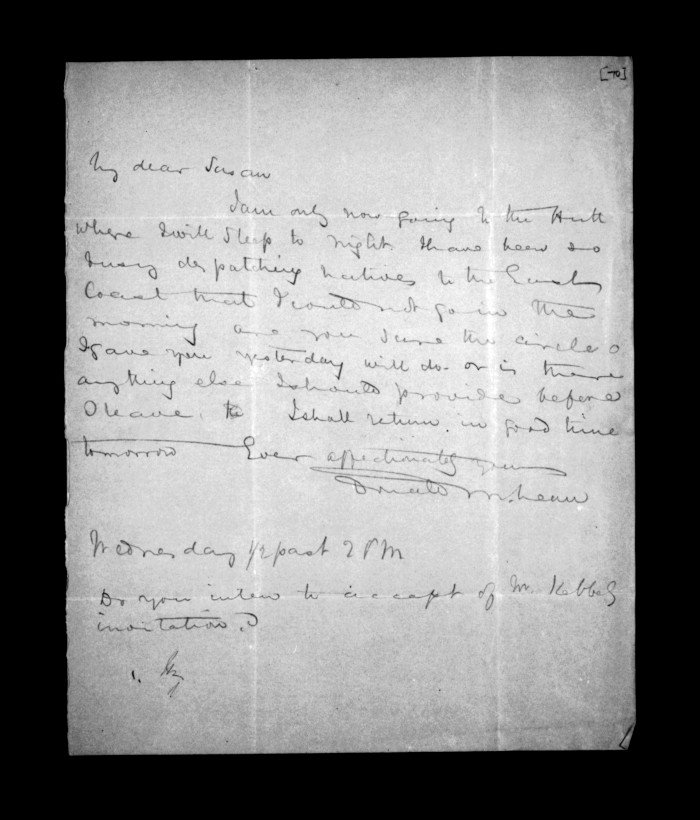 [70]
My dear Susan
I am only now going to the Hutt
where I will Sleep to night I have been so
busy despatching natives to the East
Coast that I could not go in the
morning are you sure the circle
I gave you yesterday will do - or is there
anything else I should provide before
I leave. I shall return in good time
tomorrow Ever affectionately yours
Donald McLean
Wednesday 1/2 past 2 PM
Do you intend to accept of Mr. Kebbell
invitation?